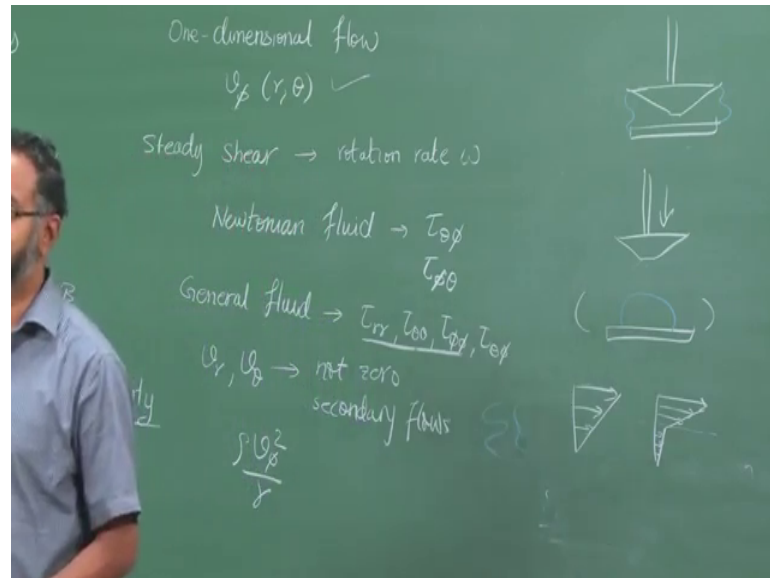 One-dimensional flow
υ_φ (r, θ) ✓
Steady shear → rotation rate ω
Newtonian fluid → τ_θφ
τ_φθ
General fluid → τ_rr, τ_θθ, τ_φφ, τ_θφ
υ_r, υ_θ → not zero
secondary flows
ρυ_φ²
r